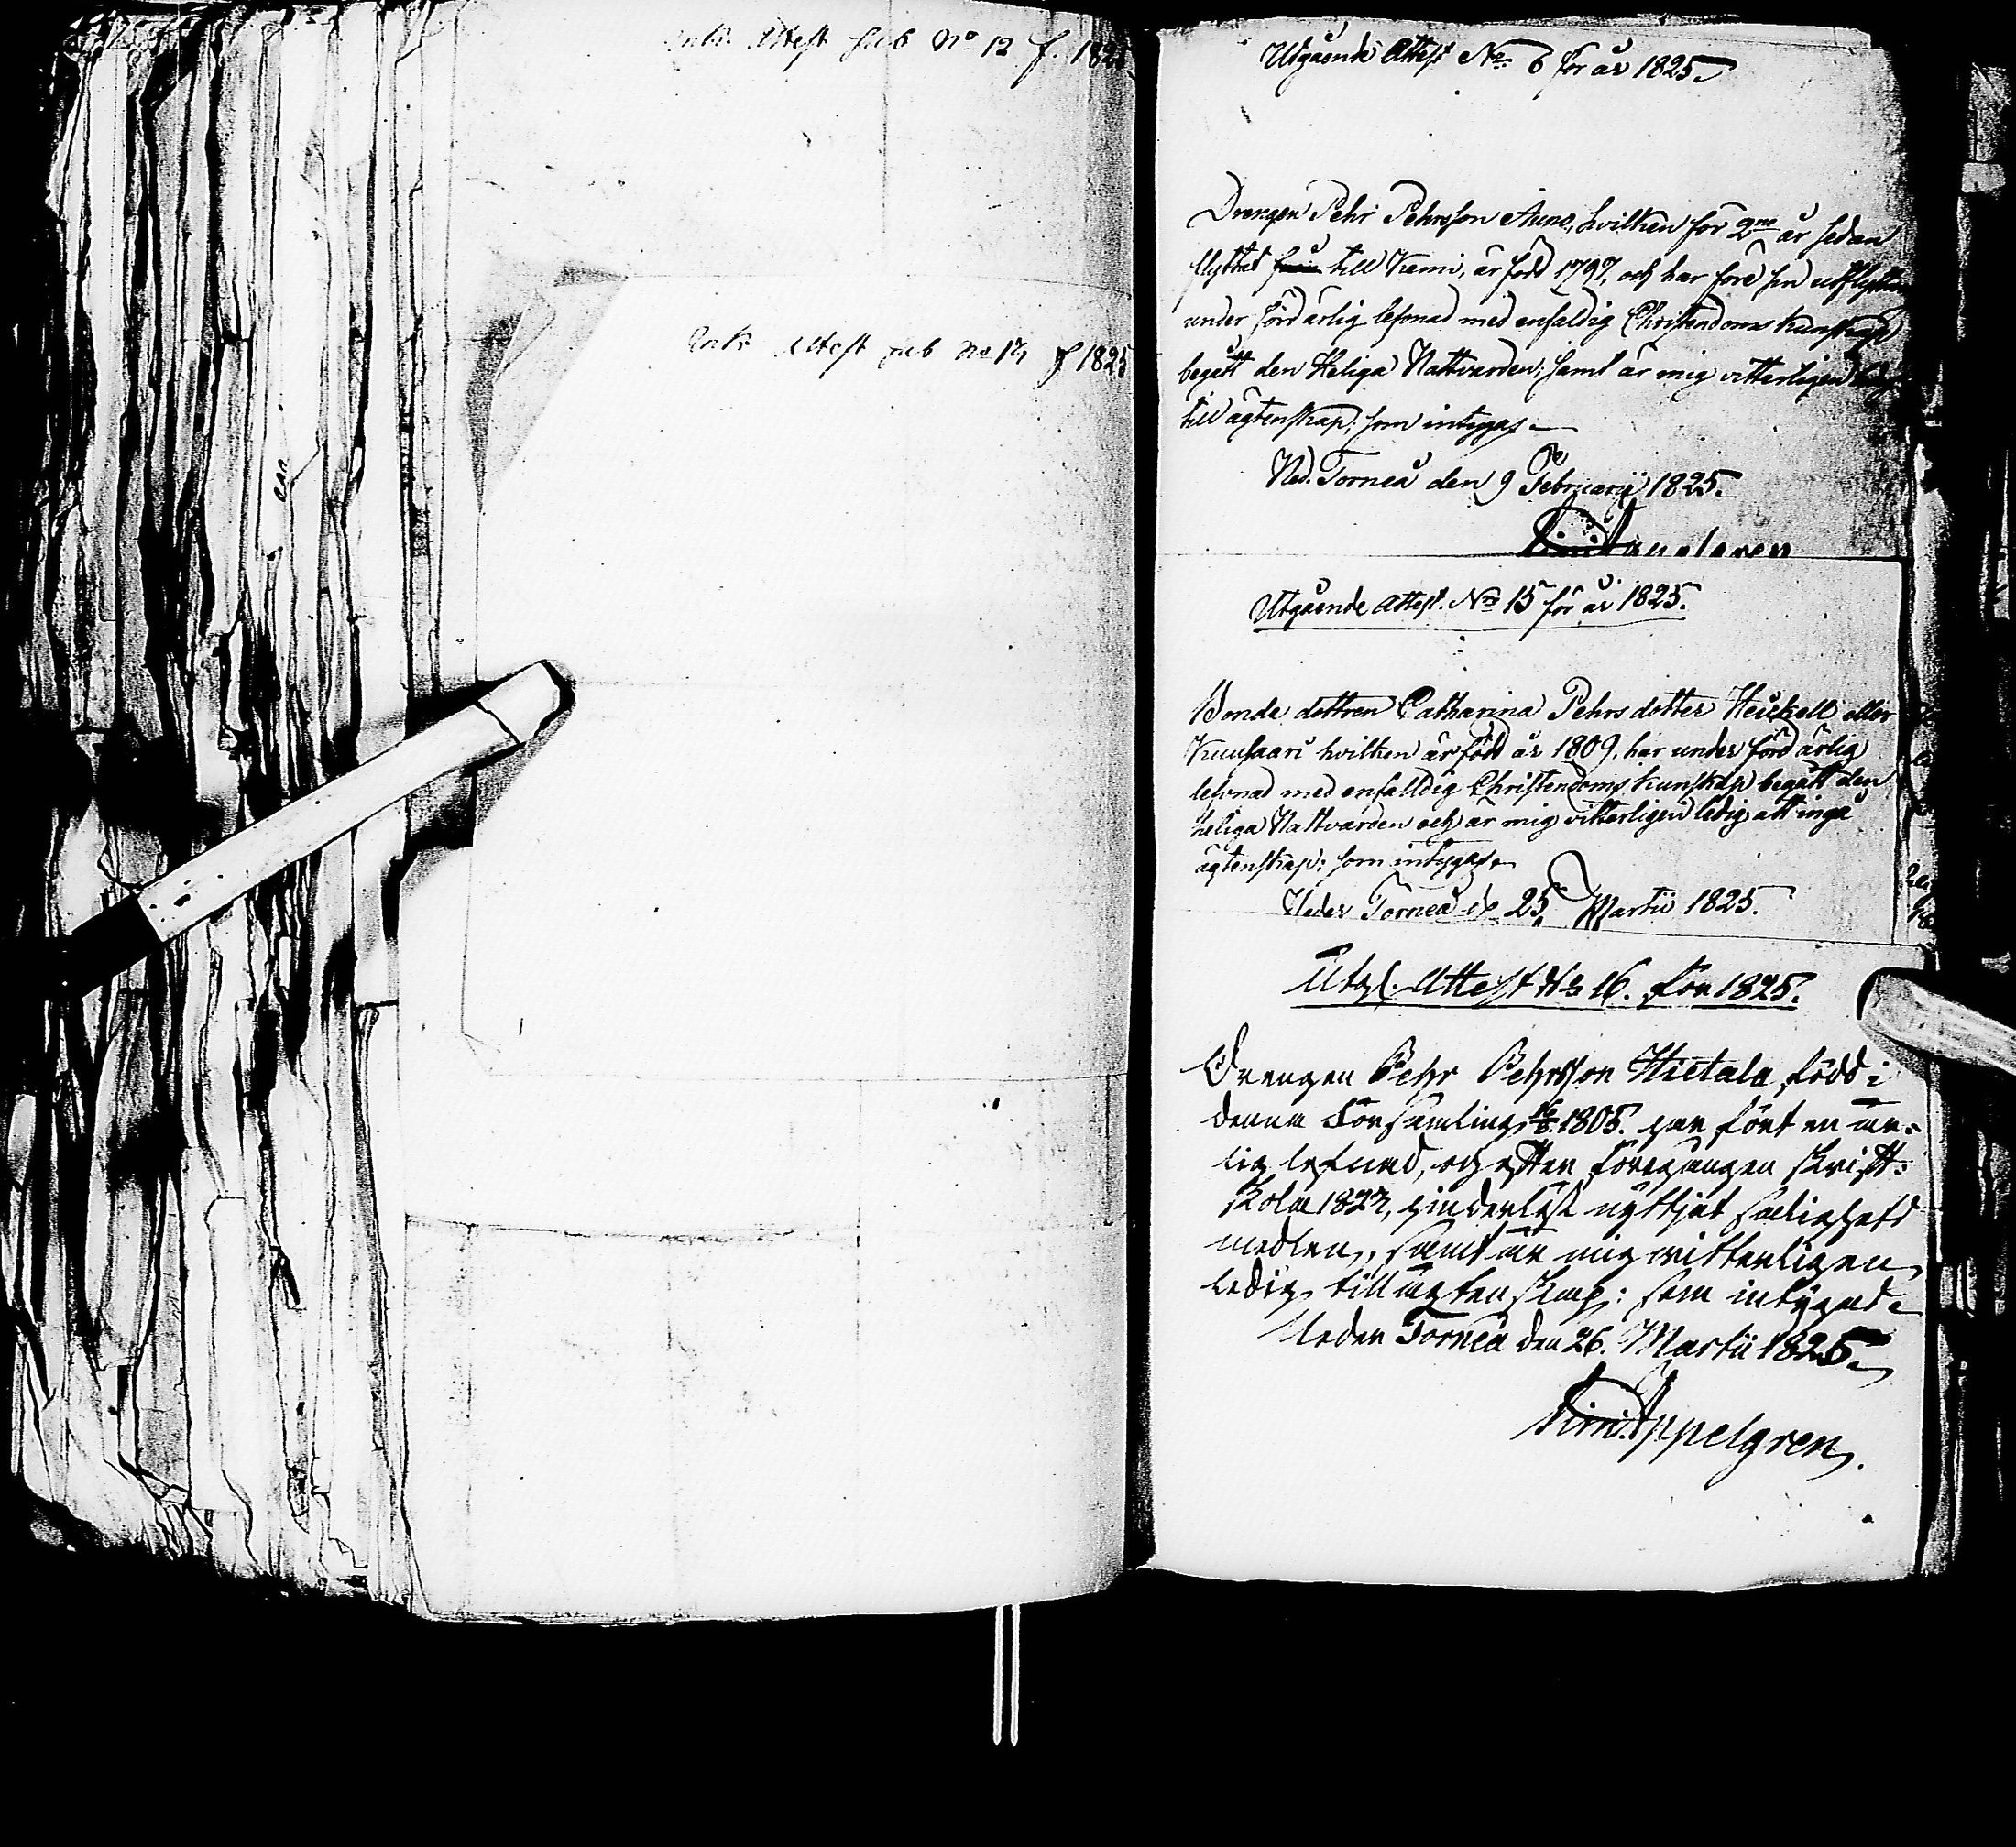 Ank. Attest sub No 12 f. 1825
Ank. Attest sub No 17, f 1825
Utgående Attest No 6 för år 1825.
Drengen Pehr Pehrsson Auno, hvilken för 2ne år sedan
flyttat till Kemi, är född 1797, och har före sin utflyttn
under förd ärlig lefvnad med enfaldig Christendoms kunskap
begått den Heliga Nattvarden; samt är mig vitterligen ledig
till ägtenskap; som intygas.
Ned. Torneå den 9 Februarii 1825.
Utgående Attest. No 15 för år 1825.
Bonde dottren Catharina Pehrs dotter Heickell eller
Kuusaari hvilken är född år 1809, har under förd ärlig
lefvnad med enfalldig Christendoms kunskap begått den
heliga Nattvarden och är mig vitterligen ledig att ingå
ägtenskap: som intygas.
Neder Torneå d. 25 Martii 1825.
Utg. Attest No 16. för 1825.
Drengen Pehr Pehrsson Hietala, född i
denna Församling 1805. har fört en är-
lig lefnad, och efter föregången Skrift-
Skola 1822, hinderlöst nyttjat salighets
medlen, samt är mig witterligen
ledig till ägtenskap: som intygas.
Neder Torneå den 26. Martii 1825.
Appelgren.